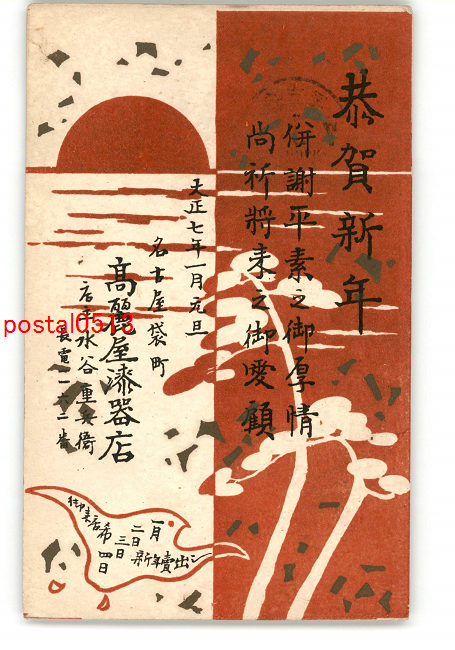 恭賀新年
併謝平素之御厚情
尚祈將来之御愛顧
大正七年一月元旦
名古屋袋町
高麗屋漆器店
店主水谷重兵衛
長電一一六二番
一月
二日
三日
四日
新年賣出シ
御来店希
postal0513